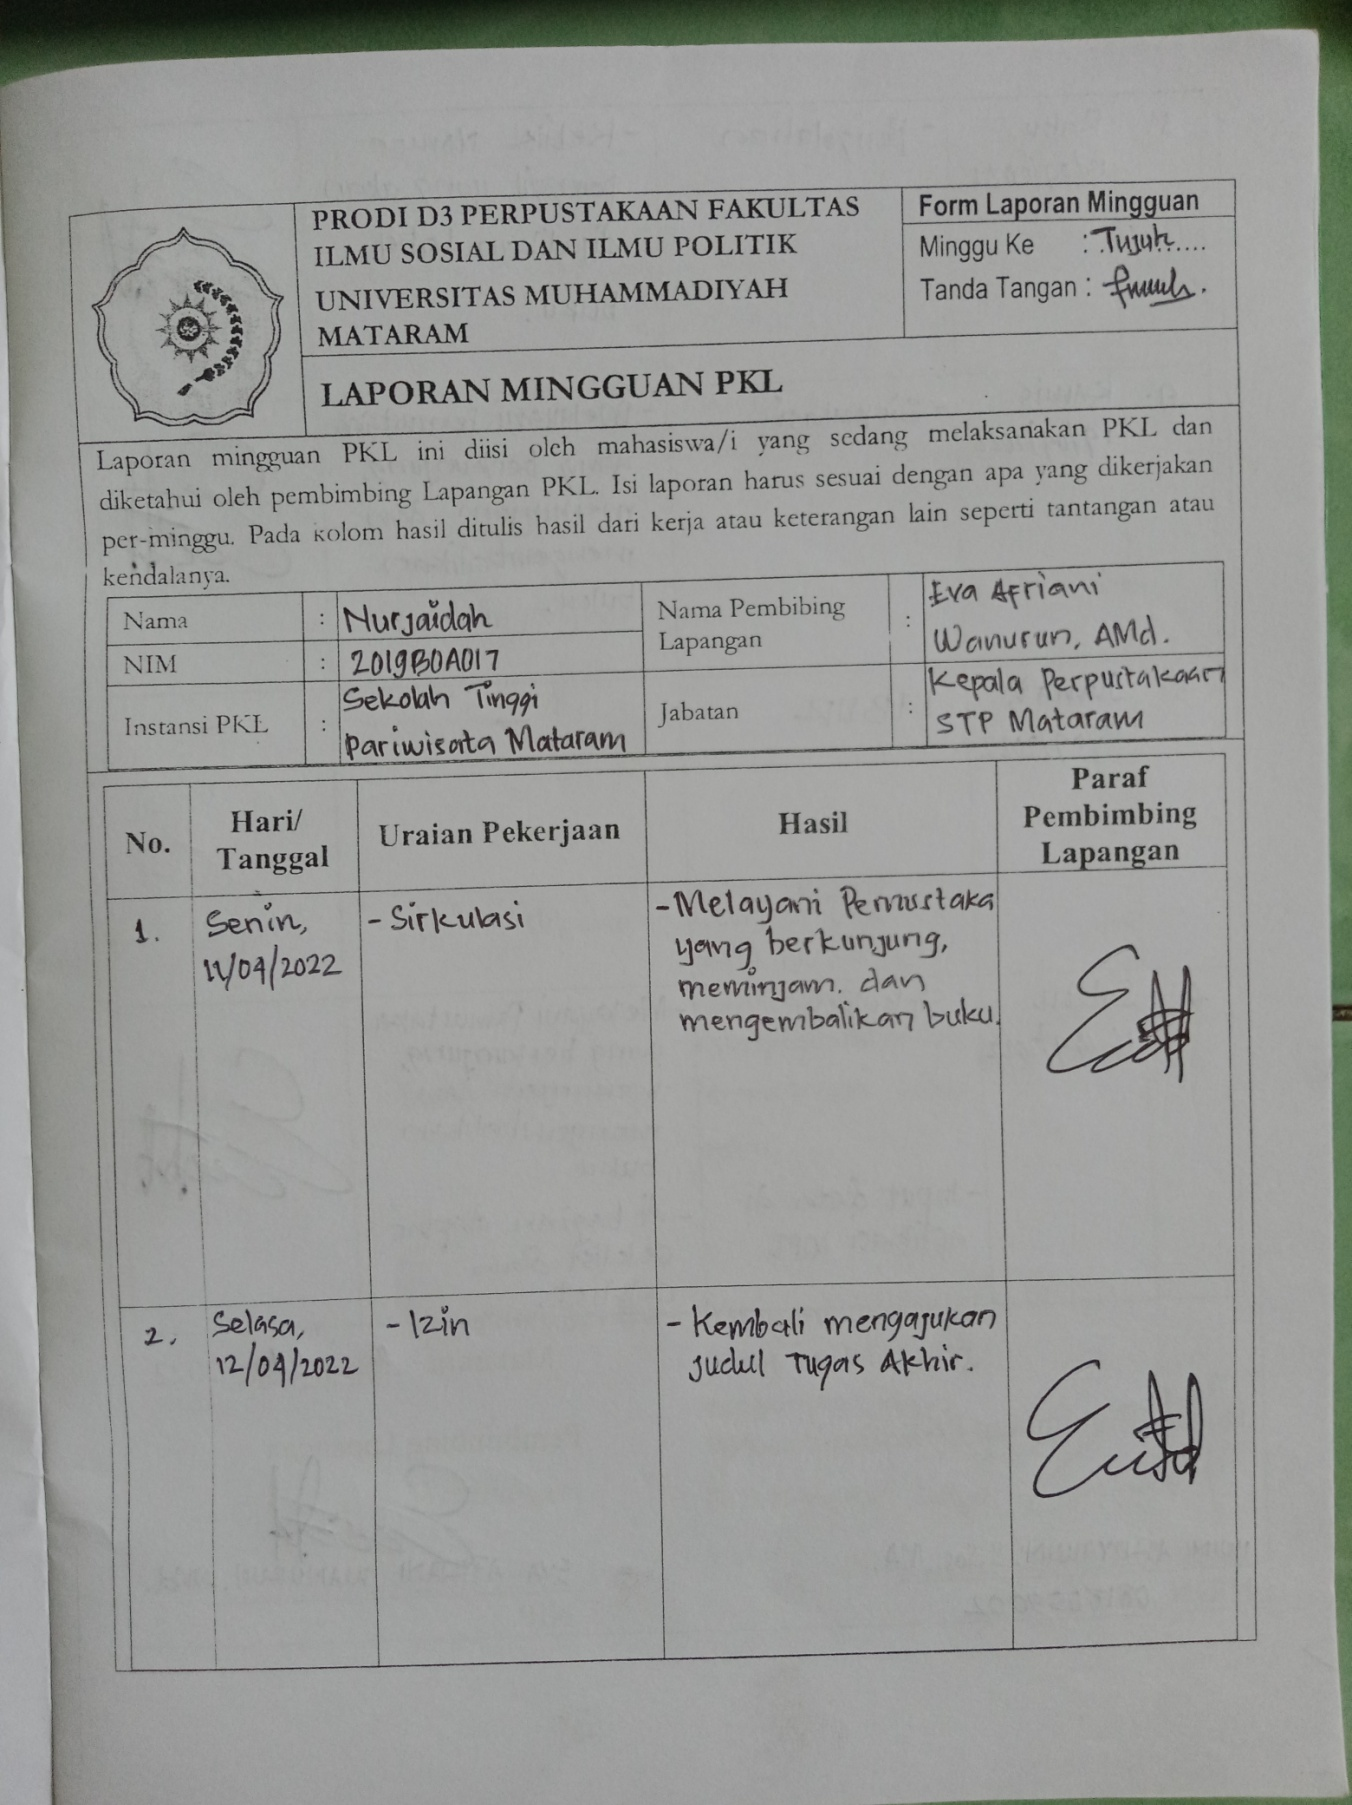 PRODI D3 PERPUSTAKAAN FAKULTAS
ILMU SOSIAL DAN ILMU POLITIK
UNIVERSITAS MUHAMMADIYAH
MATARAM
Form Laporan Mingguan
Minggu Ke : Tujuh....
Tanda Tangan :
LAPORAN MINGGUAN PKL
Laporan mingguan PKL ini diisi oleh mahasiswa/i yang sedang melaksanakan PKL dan
diketahui oleh pembimbing Lapangan PKL. Isi laporan harus sesuai dengan apa yang dikerjakan
per-minggu. Pada kolom hasil ditulis hasil dari kerja atau keterangan lain seperti tantangan atau
kendalanya.
Nama : Nurjaidah
NIM : 2019B0A017
Instansi PKL : Sekolah Tinggi
Pariwisata Mataram
Nama Pembibing
Lapangan : Eva Afriani
Wanurun, AMd.
Jabatan : Kepala Perpustakaan
STP Mataram
No. Hari/
Tanggal Uraian Pekerjaan Hasil Paraf
Pembimbing
Lapangan
1. Senin,
11/04/2022
- Sirkulasi
- Melayani Pemustaka
yang berkunjung,
meminjam. dan
mengembalikan buku.
2. Selasa,
12/04/2022
- Izin
- Kembali mengajukan
judul Tugas Akhir.